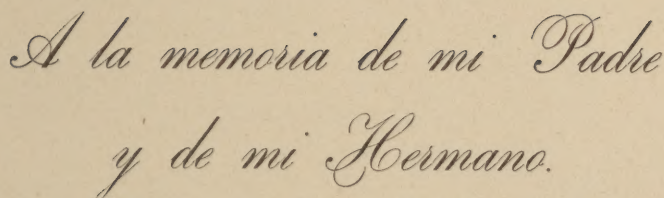 A la memoria de mi Padre
y de mi Hermano.